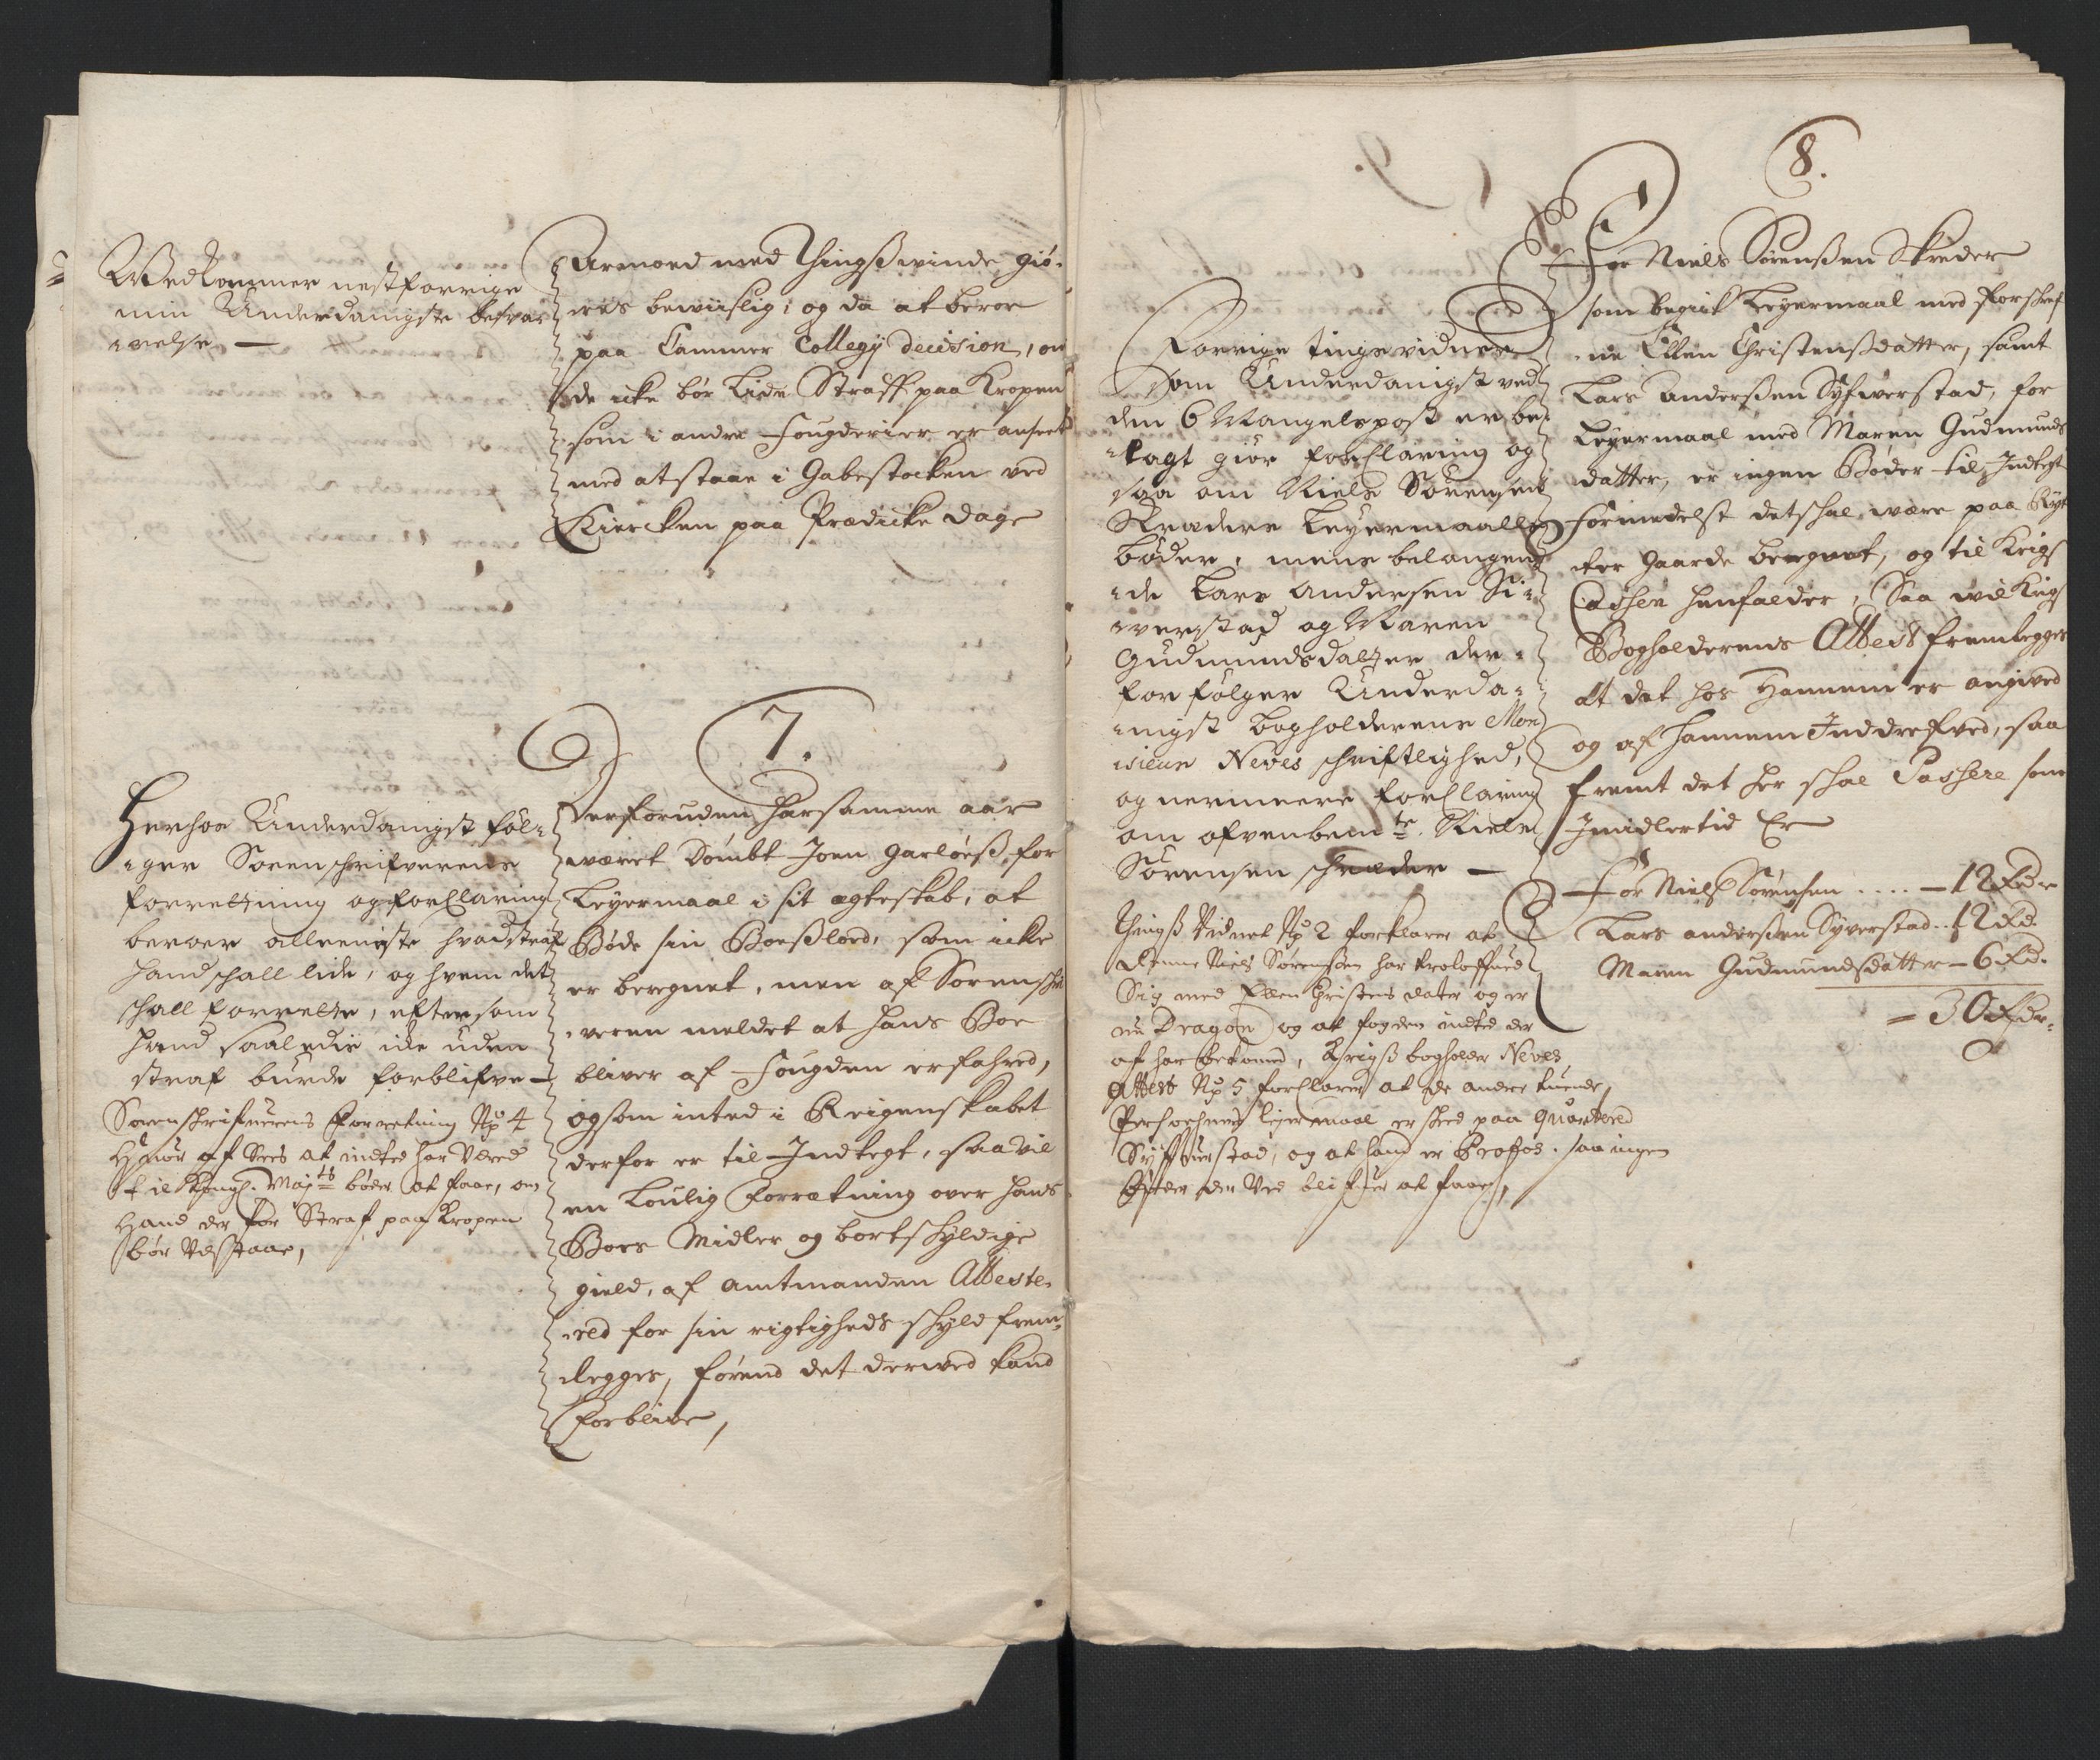 Wedkommer nestforrige
min Underdanigste besvar
velse —
Armoed med Thingswinde giø-
res bewiislig; og da at beroe
paa Cammer Collegij Decision, om
de icke bør Lide Straff paa Kropen
som i andre Fougderier er anseet
med at staae i Gabestocken ved
Kiercken paa Prædicke dage
7.
Herhos Underdanigst føl-
ger Sorenschrifverens
forrettning og forClaring
beroer alleeniste hvad straf
hand schall lide, og hvem det
schall forrette, eftersom
hand saaledis icke uden
straf burde forblifve —
Sorenschrifuerens Forretning No 4
Huor af Sees at inted har Været
til Kongl. Maj:ts bøder at faae, om
Hand der for Straf paa Kropen
bør Udstaae,
Derforuden har samme aar
wæret Dømbt Joen Garløes, for
Leyermaal i sit ægteskab, at
Bøde sin Boeslod, som icke
er beregnet, men af Sorenschri
veren meldet at hans Boe
bliver af Fougden erfahred,
og som inted i Reigenskabet
derfor er til Indtegt, saa vil
en Loulig Forrætning over hans
Boes Midler og bortschyldige
gield, af Amtmanden Atteste-
red for sin rigtigheds schyld frem-
legges, førend det derved kand
Forblive,
8.
Forrige tingsvidner
som Underdanigst ved
den 6 Mangelspost er be-
lagt giør forClaring og
saa om Niels Sørensen
Skreders Leyermaalls
bøder, mens belangen-
de Lars Andersen Si-
verstad og Maren
Gudmundsdatter der-
for følger Underda-
nigst bogholderens Mon
sieur Neves schriftlighed,
og nermeere forClaring
om ofvenbem:te Niels
Sørensen schreder —
Things Vidnet No 2 forklarer at
denne Niels Sørensen har troloffued
Sig med Ellen Christens dater og er
nu Dragon og at fogden inted der
af har bekomed, Krigs bogholder Neves
Attest No 5 forClarer at de andre tuende
Persohners leyermaal er skeed paa quarteret
Syffuerstad, og at hand er Profos, saa ingen
bøder der Ved blifuer at faae,
For Niels Sørensen Skreder
som begick Leyermaal med forschref
ne Ellen Christensdatter, samt
Lars Andersen Syfwerstad, for
Leyermaal med Maren Gudmunds
datter, er ingen Bøder til Indtegt
formedelst det schal være paa Ryt
ter Gaarde beregnet, og til Krigs
Cassen henfalder, Saa wil Krigs
Bogholderens Attest fremlegges
at det hos Hannem er angived
og af hannem Inddrefved, saa
fremt det her schal Passere som
Imidlertid Er
For Niels Sørensen .... — 12 Rdr
Lars Andersen Syverstad .. 12 Rd.
Maren Gudmundsdatter — 6 Rd.
= 30 Rdr.